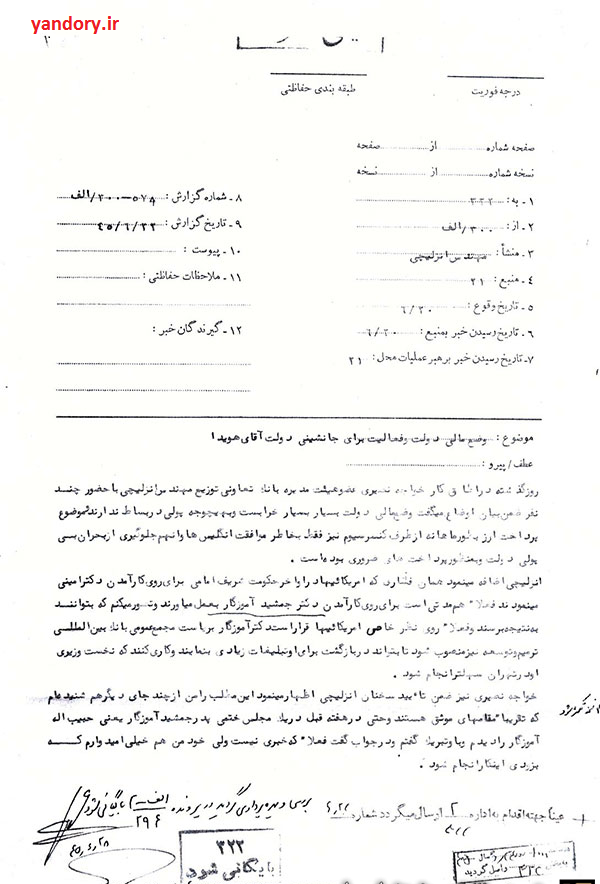 yandory.ir
درجه فوریت
طبقه بندی حفاظتی
صفحه شماره از صفحه
نسخه شماره از نسخه
۱ـ به: ۳۲۲
۲ـ از: ۳۰۰/الف
۳ـ منشأ: مهندس انزلیچی
۴ـ منبع: ۲۱
۵ـ تاریخ وقوع: ۶/۲۰
۶ـ تاریخ رسیدن خبر بمنبع: ۶/۲۰
۷ـ تاریخ رسیدن خبر برهبر عملیات محل: ۲۱
۸ـ شماره گزارش:
۹ـ تاریخ گزارش: ۴۵/۶/۲۲
۱۰ـ پیوست:
۱۱ـ ملاحظات حفاظتی:
۱۲ـ گیرندگان خبر:
موضوع: وضع مالی دولت و فعالیت برای جانشینی دولت آقای هویدا
عطف/پیرو:
روز گذشته در اطاق کار خواجه نصیری عضو هیئت مدیره بانک تعاونی توزیع مهندس انزلیچی با حضور چند
نفر ضمن بیان اوضاع میگفت وضع مالی دولت بسیار بسیار خراب است و بهیچوجه پولی در بساط ندارند موضوع
پرداخت ارز بطور ماهانه از طرف کنسرسیوم نیز فقط بخاطر موافقت انگلیس ها و آنهم جلوگیری از بحران بی
پولی دولت و بمنظور پرداخت های ضروری بوده است.
انزلیچی اضافه مینمود همان فشاری که امریکائیها در اواخر حکومت شریف امامی برای روی کار آمدن دکتر امینی
مینمودند فعلا" هم مدتی است برای روی کار آمدن دکتر جمشید آموزگار بعمل میاورند و تصور میکنم که بتوانند
به نتیجه برسند و فعلا" روی نظر خاص امریکائیها قرار است دکتر آموزگار بریاست مجمع عمومی بانک بین المللی
ترمیم و توسعه نیز منصوب شود تا بتواند در بازگشت برای او تبلیغات زیادی بنمایند و کاری کنند که نخست وزیری
او در تهران سهلتر انجام شود.
خواجه نصیری نیز ضمن تأیید سخنان انزلیچی اظهار مینمود این مطلب را من از چند جای دیگر هم شنیده ام
که تقریبا" مقامهای موثق هستند و حتی در هفته قبل در یک مجلس ختمی پدر جمشید آموزگار یعنی حبیب اله
آموزگار را دیدم و باو تبریک گفتم و در جواب گفت فعلا" که خبری نیست ولی خود من هم خیلی امیدوارم کــه
بزودی اینکار انجام شود.
عیناً جهت اقدام به اداره ۲ ارسال میگردد شماره
۲۹۶
۳۲۲
بایگانی شود
۳۲۲